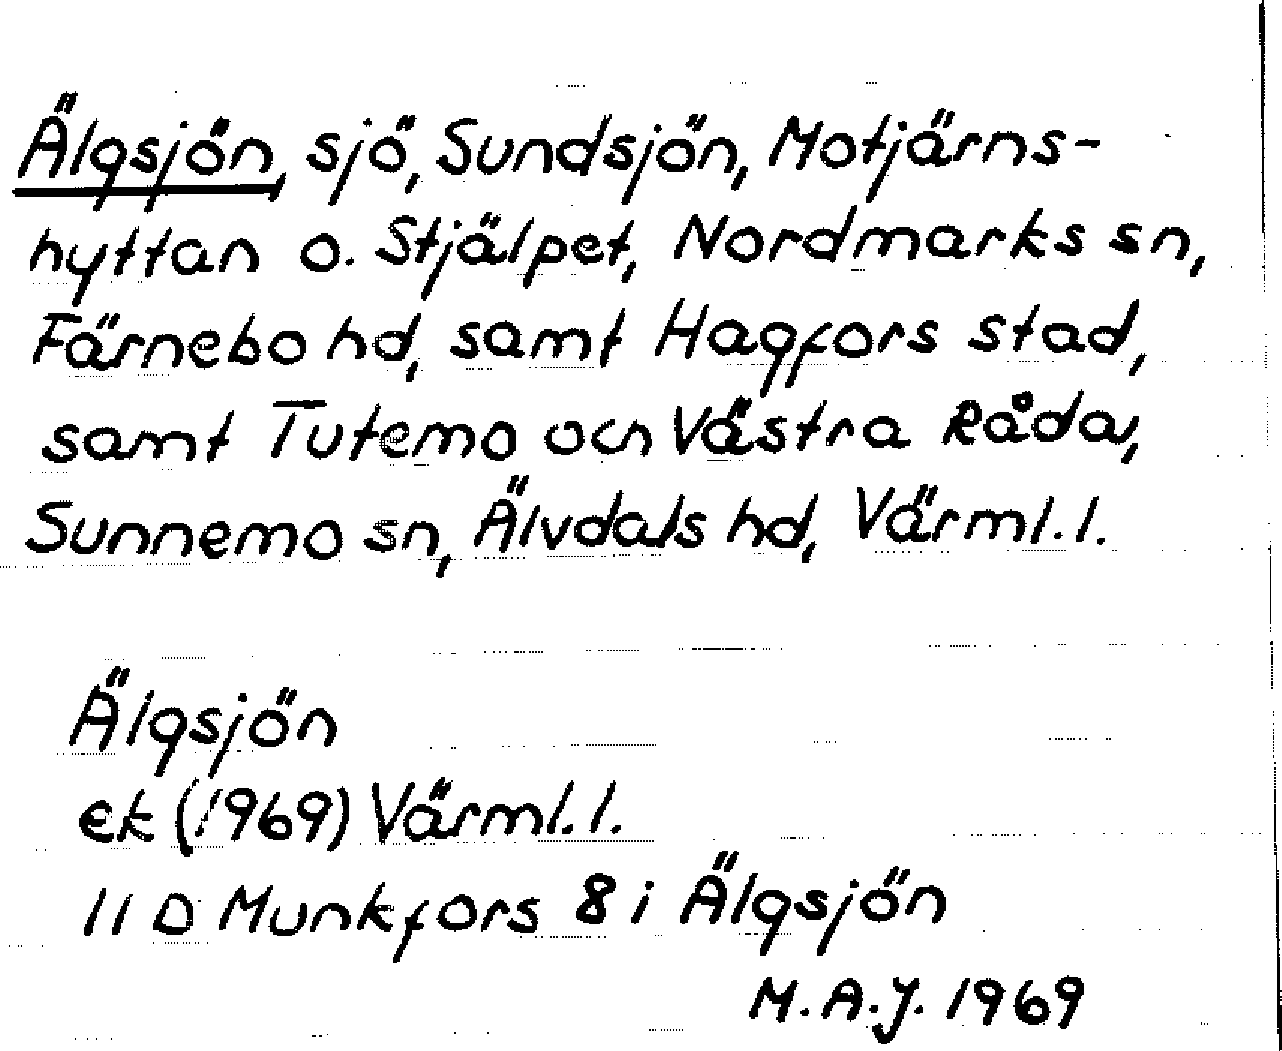 Älgsjön, sjö, Sundsjön, Motjärns-
hyttan o. Stjälpet, Nordmarks sn,
Färnebo hd, samt Hagfors stad,
samt Tutemo och Västra Råda,
Sunnemo sn, Älvdals hd, Värml. l.
Älgsjön
ek (1969) Värml. l.
11 D Munkfors 8 i Älgsjön
M.A.J. 1969